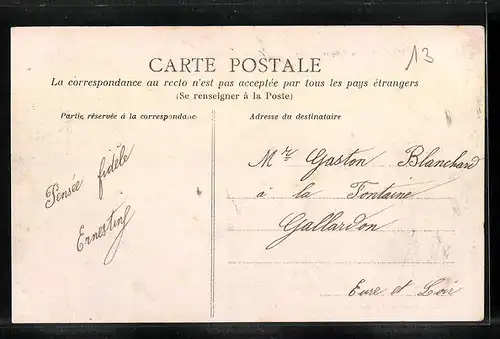 13
CARTE POSTALE
La correspondance au recto n'est pas acceptée par tous les pays étrangers
(Se renseigner à la Poste)
Partie réservée à la correspondance
Adresse du destinataire
Pensée fidèle
Mr Gaston Blanchard
à la Fontaine
Gallardon
Eure et Loir